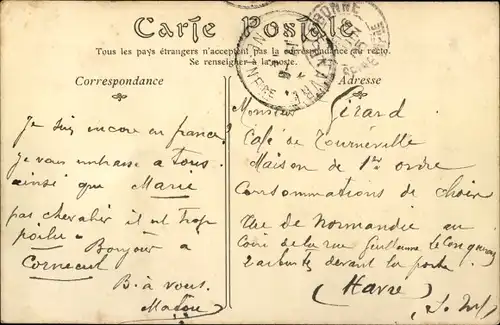 Carte Postale
Tous les pays étrangers n'acceptent pas la correspondance au recto.
Se renseigner à la poste.
Correspondance
Adresse
Je suis encore en france
je vous embrasse a tous
ainsi que Marie
pas chevalier il est trop
poilu Bonjour a
Corneuil
B. à vous
Monsieur Girard
Café de Tourneville
Maison de 1er ordre
Consommations de choix
Rue de Normandie au
Coin de la rue Guillaume le Conquérant
2 arbustes devant la porte
(Havre)